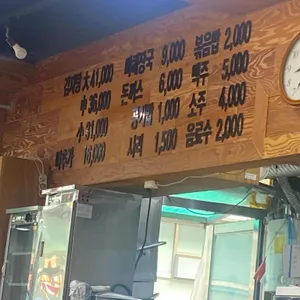 감자탕 大 41,000 뼈해장국 9,000 볶음밥 2,000
中 36,000 돈까스 6,000 맥주 5,000
小 31,000 공기밥 1,000 소주 4,000
16,000 사리 1,500 음료수 2,000